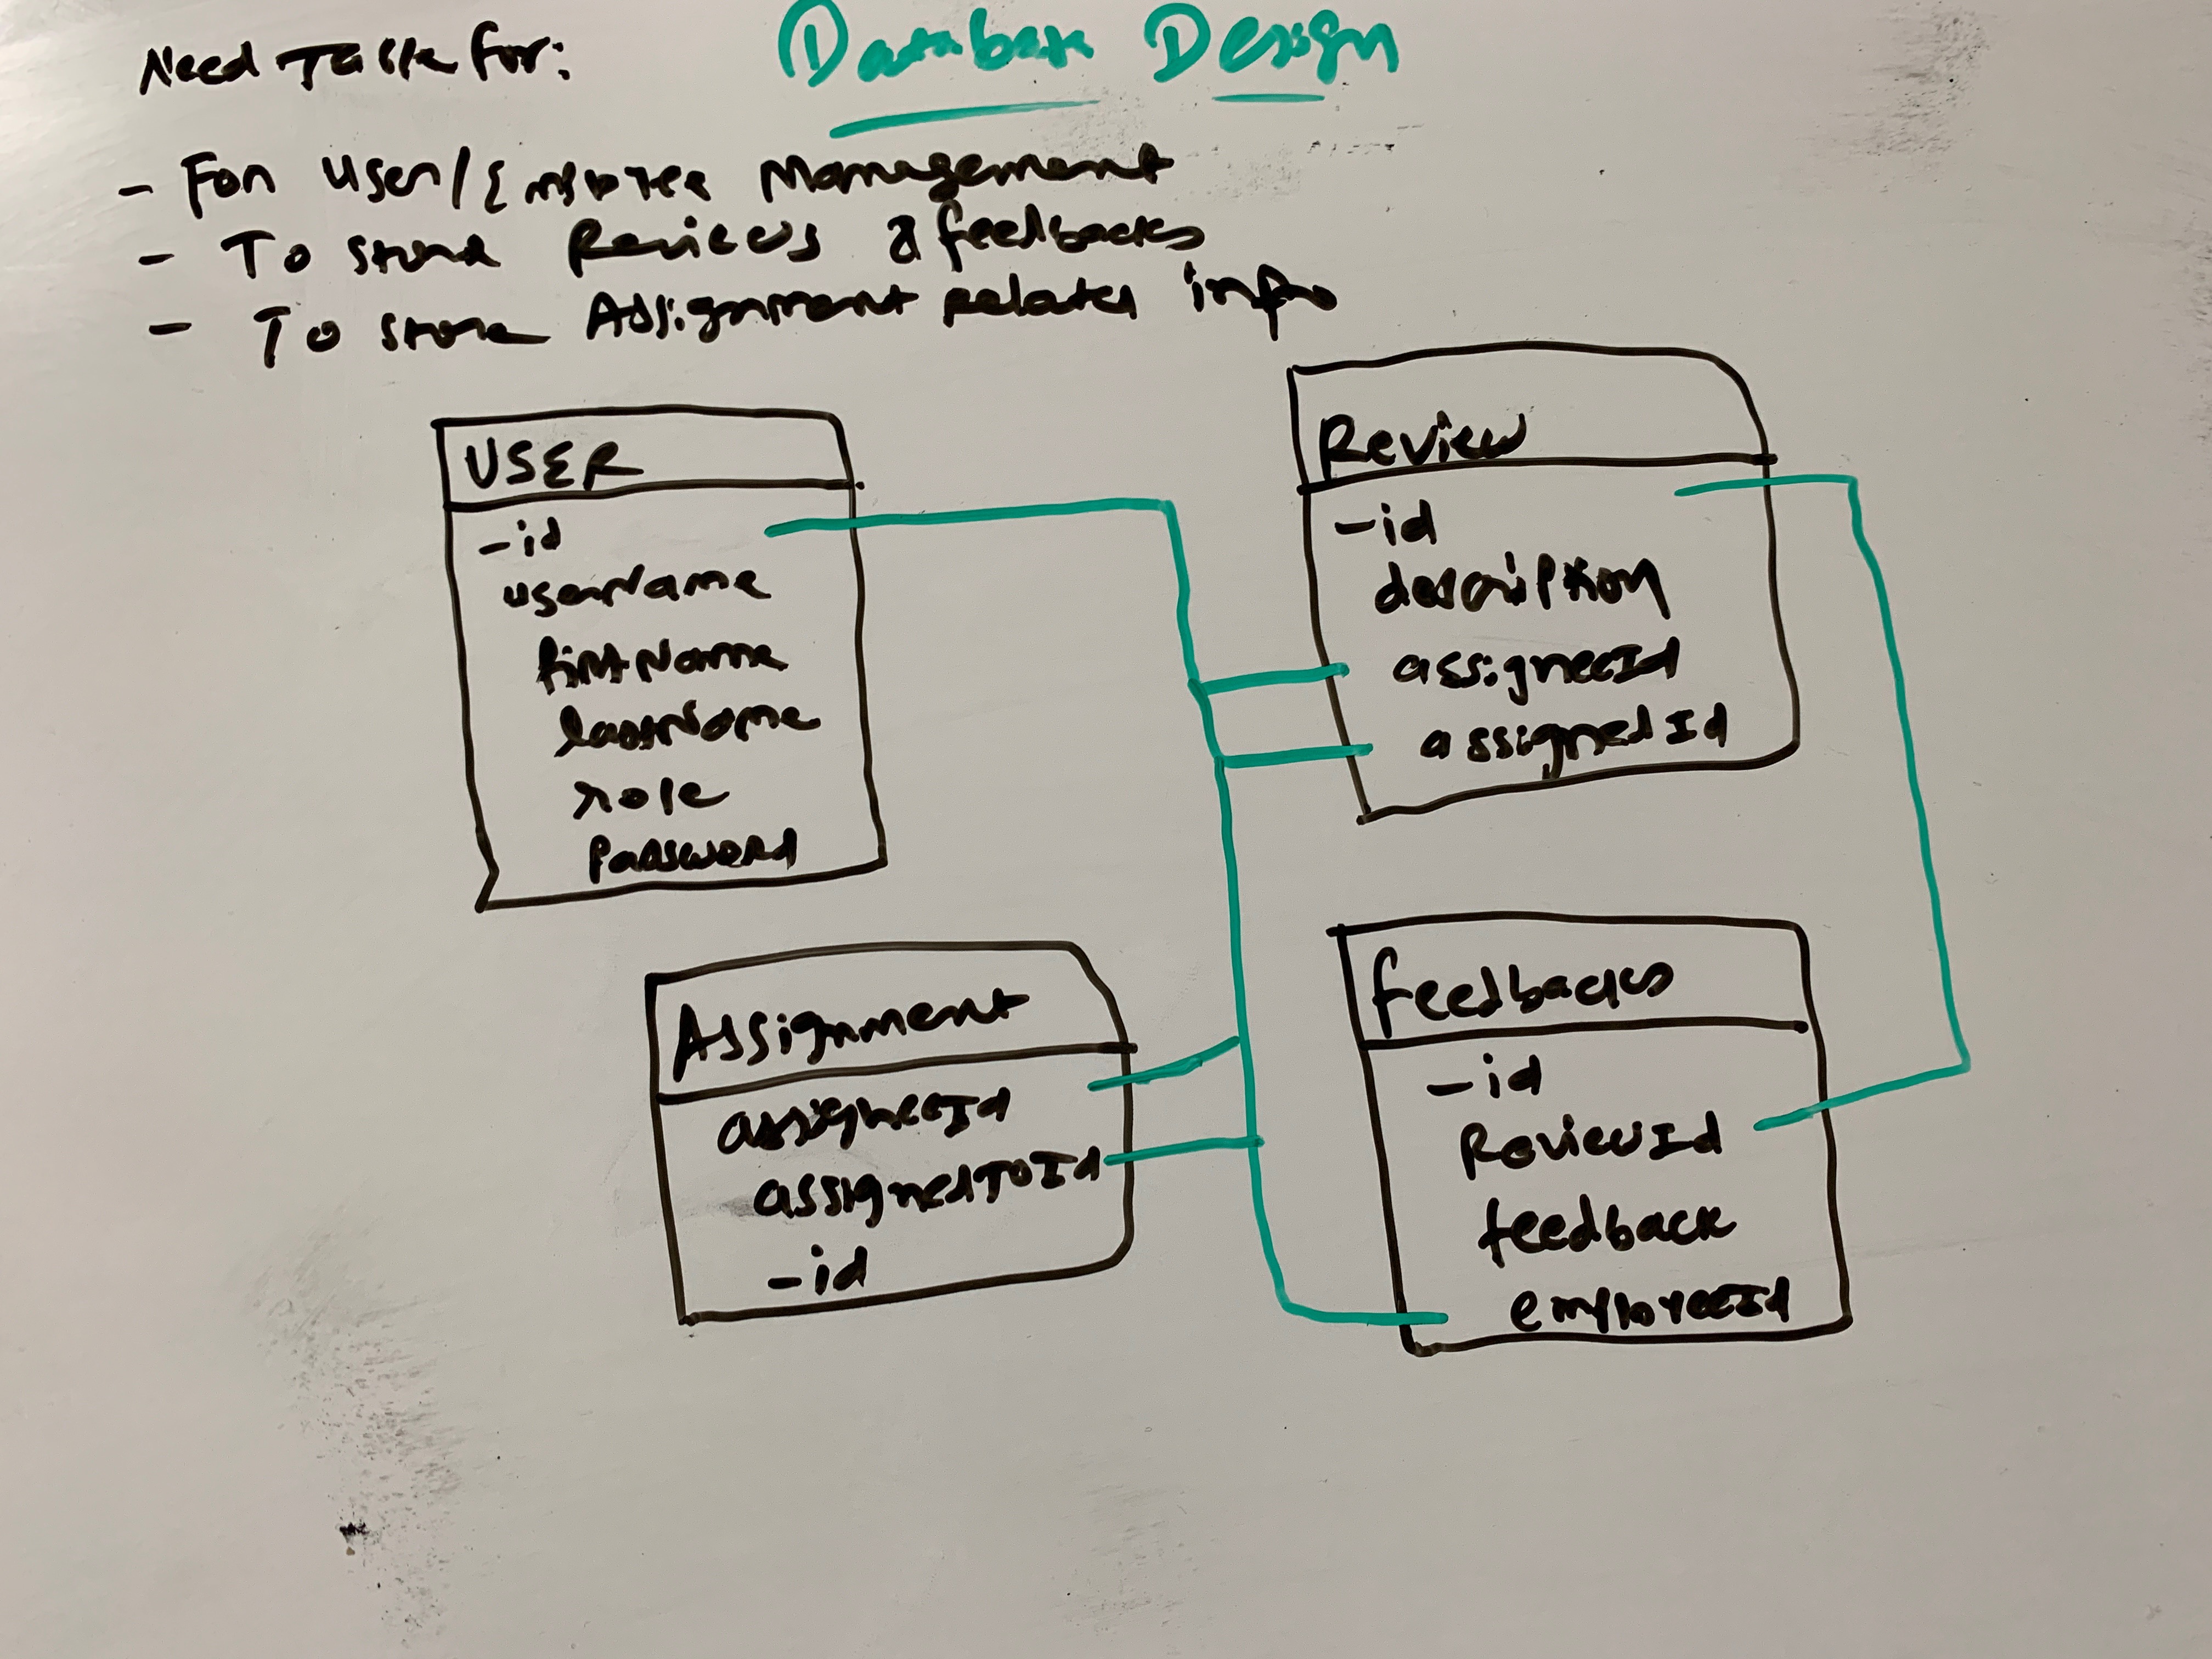 Database Design
Need Table for:
- For User/Employee Management
- To store Reviews & feedbacks
- To store Assignment related info
USER
-id
userName
firstName
lastName
role
password
Review
-id
description
assigneeId
assignedId
Assignment
assigneeId
assignedToId
-id
feedbacks
-id
ReviewId
feedback
employeeId